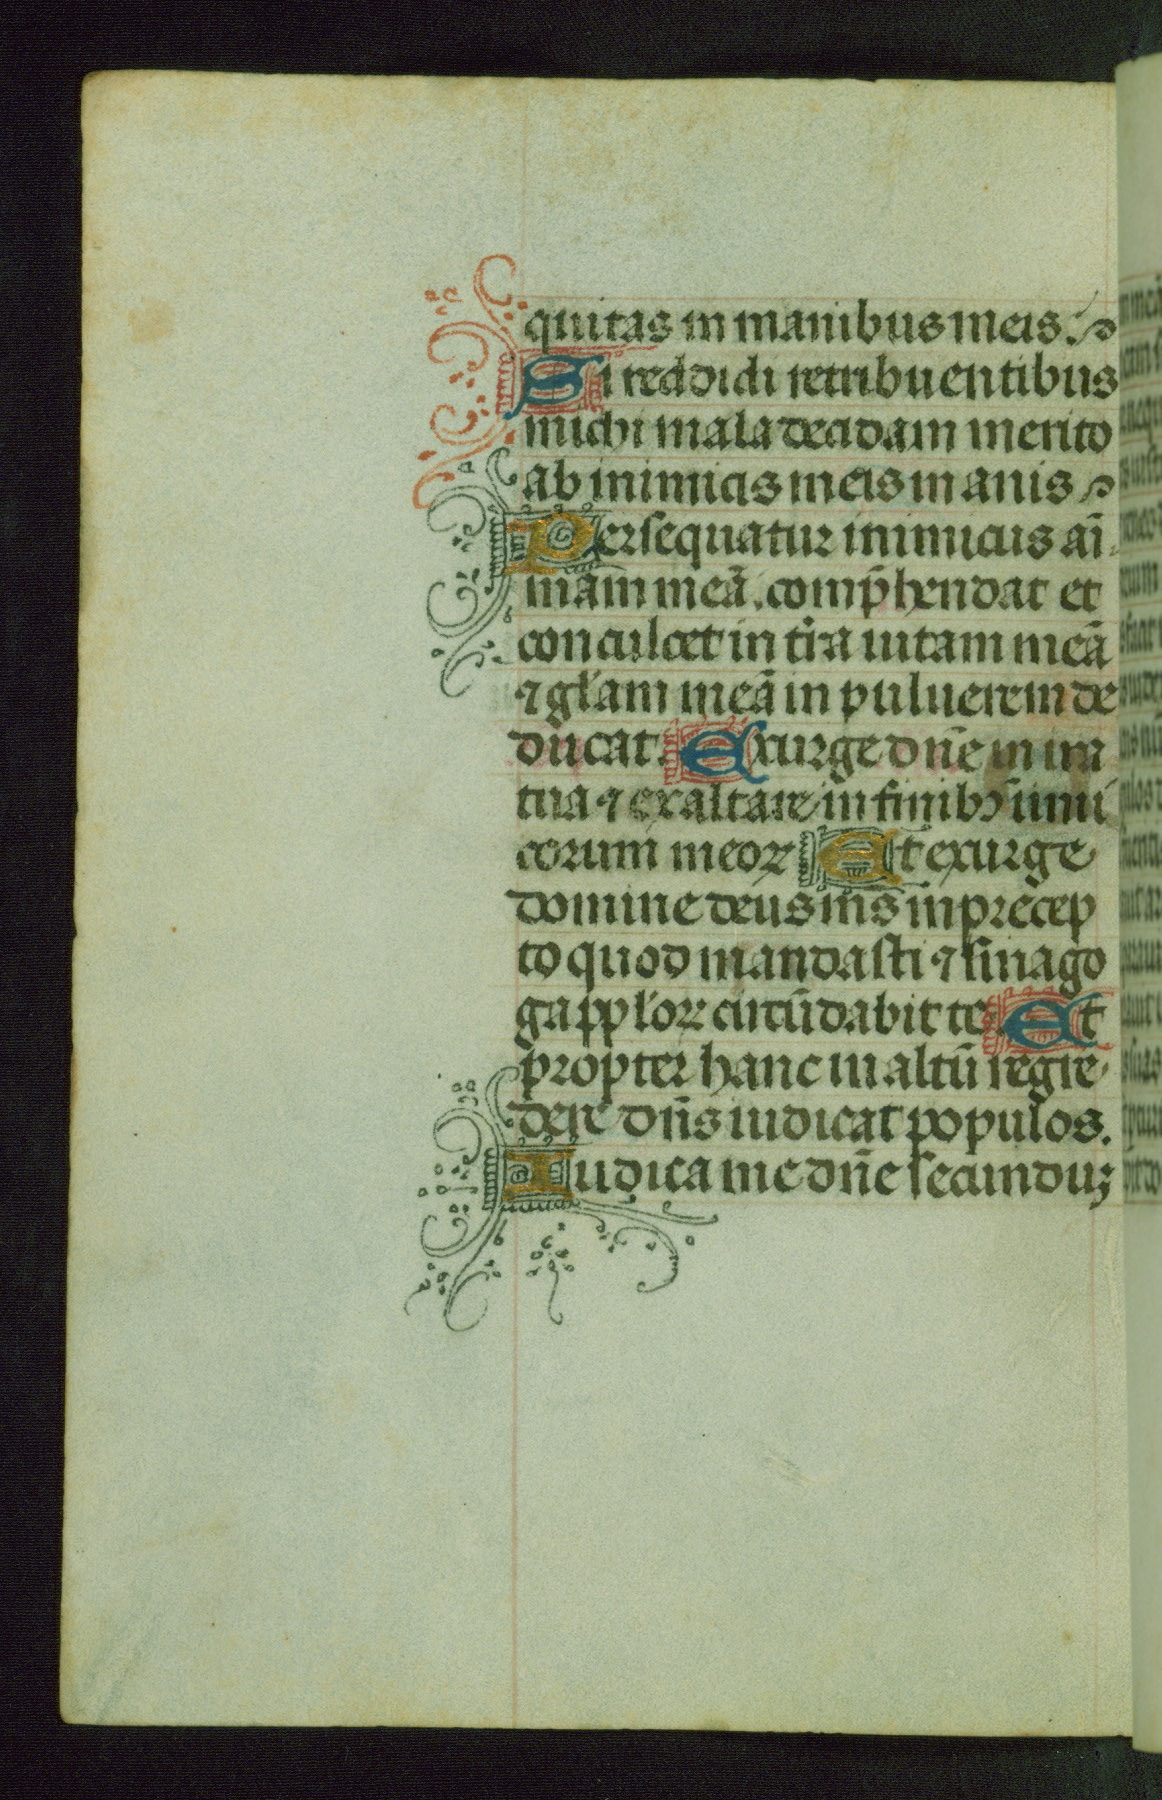 quitas in manibus meis.
Si reddidi retribuentibus
michi mala decidam merito
ab inimicis meis inanis
Persequatur inimicus ai̅
mam mea̅. comp̅hendat et
conculcet in t̅ra uitam mea̅
⁊ gl̅am mea̅ in puluerem de
ducat. Exurge dn̅e in ira
tua ⁊ exaltare in finibꝫ inimi
corum meoꝝ Et exurge
domine deus m̅s in precep
to quod mandasti ⁊ sinago
ga ppl̅oꝝ circu̅dabit te Et
propter hanc in altu̅ regre
dere dn̅s iudicat populos.
Iudica me dn̅e secunduꝫ